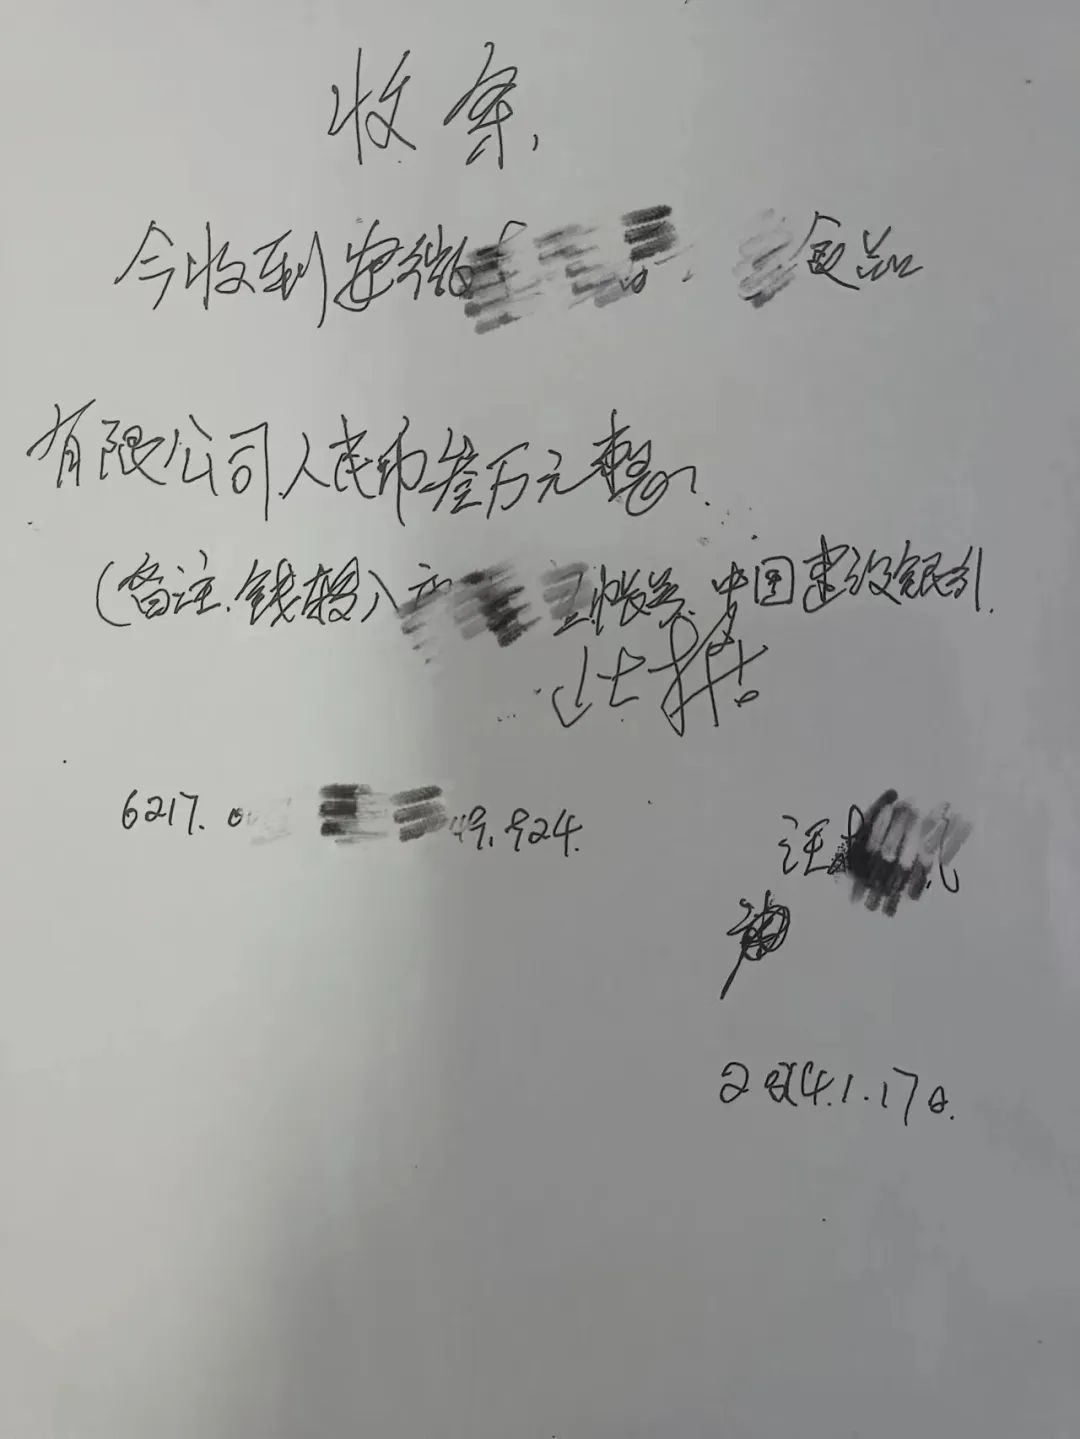 收条
今收到安徽 食品
有限公司人民币叁万元整
(备注.钱转入 账号.中国建设银行.
此据
6217. 49.924.
汪
2024.1.17日.